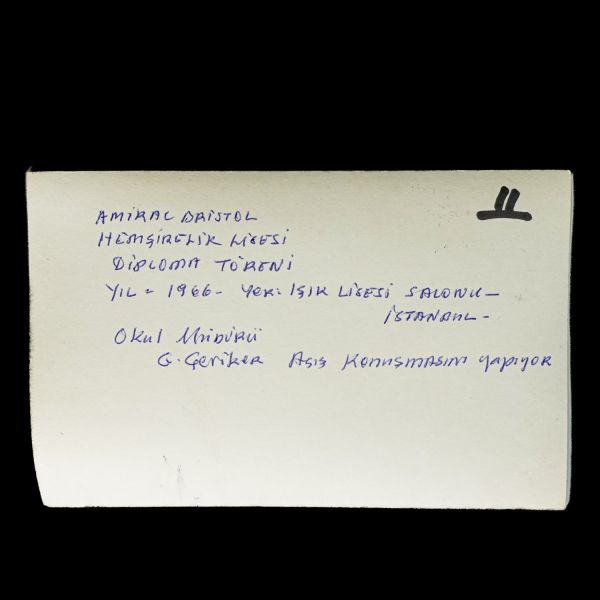 11
AMİRAL BRİSTOL
HEMŞİRELİK LİSESİ
DİPLOMA TÖRENİ
YIL = 1966 - YER: IŞIK LİSESİ SALONU -
İSTANBUL -
Okul Müdürü
G. Geriker Açış Konuşmasını yapıyor